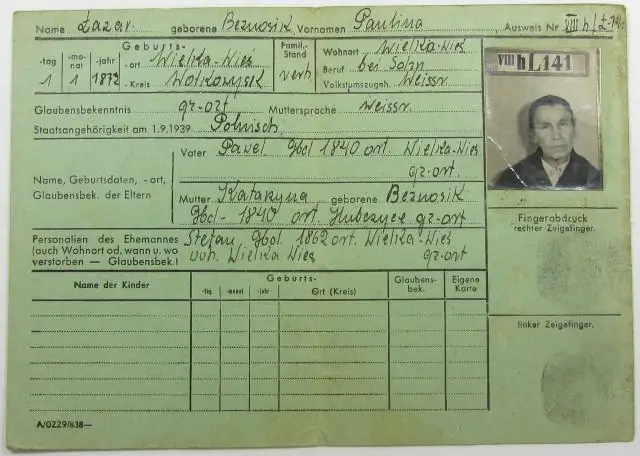 Name Łazar. geborene Beznosik, Vornamen Paulina Ausweis Nr VIII h/Ł-141
Geburts- Famil.- Wohnort Wielka-Wieś
-tag -mo-nat -jahr -ort Wielka-Wieś Stand Beruf bei Sohn
1 1 1872 -Kreis Wołkowysk verh. Volkstumszugeh. Weissr.
VIII h Ł 141
Glaubensbekenntnis gr-ort Muttersprache Weissr.
Staatsangehörigkeit am 1.9.1939 Polnisch.
Name, Geburtsdaten, - ort,
Glaubensbek. der Eltern
Vater Paweł Gbd 1840 ort. Wielka-Wieś
gr-ort.
Mutter Katarzyna geborene Beznosik
Gbd- 1840 ort. gr-ort
Personalien des Ehemannes Stefan Gbd 1862 ort. Wielka-Wieś
(auch Wohnort od. wann u. wo Wielka Wieś gr-ort
verstorben — Glaubensbek.)
Fingerabdruck
rechter Zeigefinger.
Name der Kinder Geburts- Glaubens-bek. Eigene Karte
-tag -monat -jahr Ort (Kreis)
linker Zeigefinger.
A/0229/838—